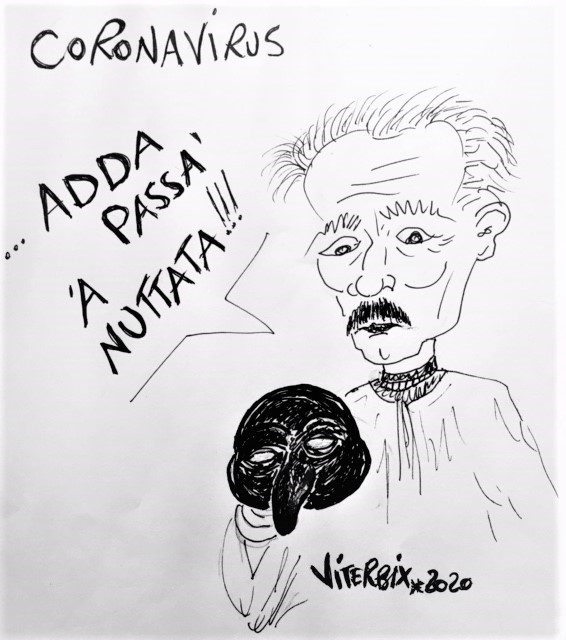 CORONAVIRUS
... ADDA
PASSA'
'A
NUTTATA!!!
VITERBIX*2020